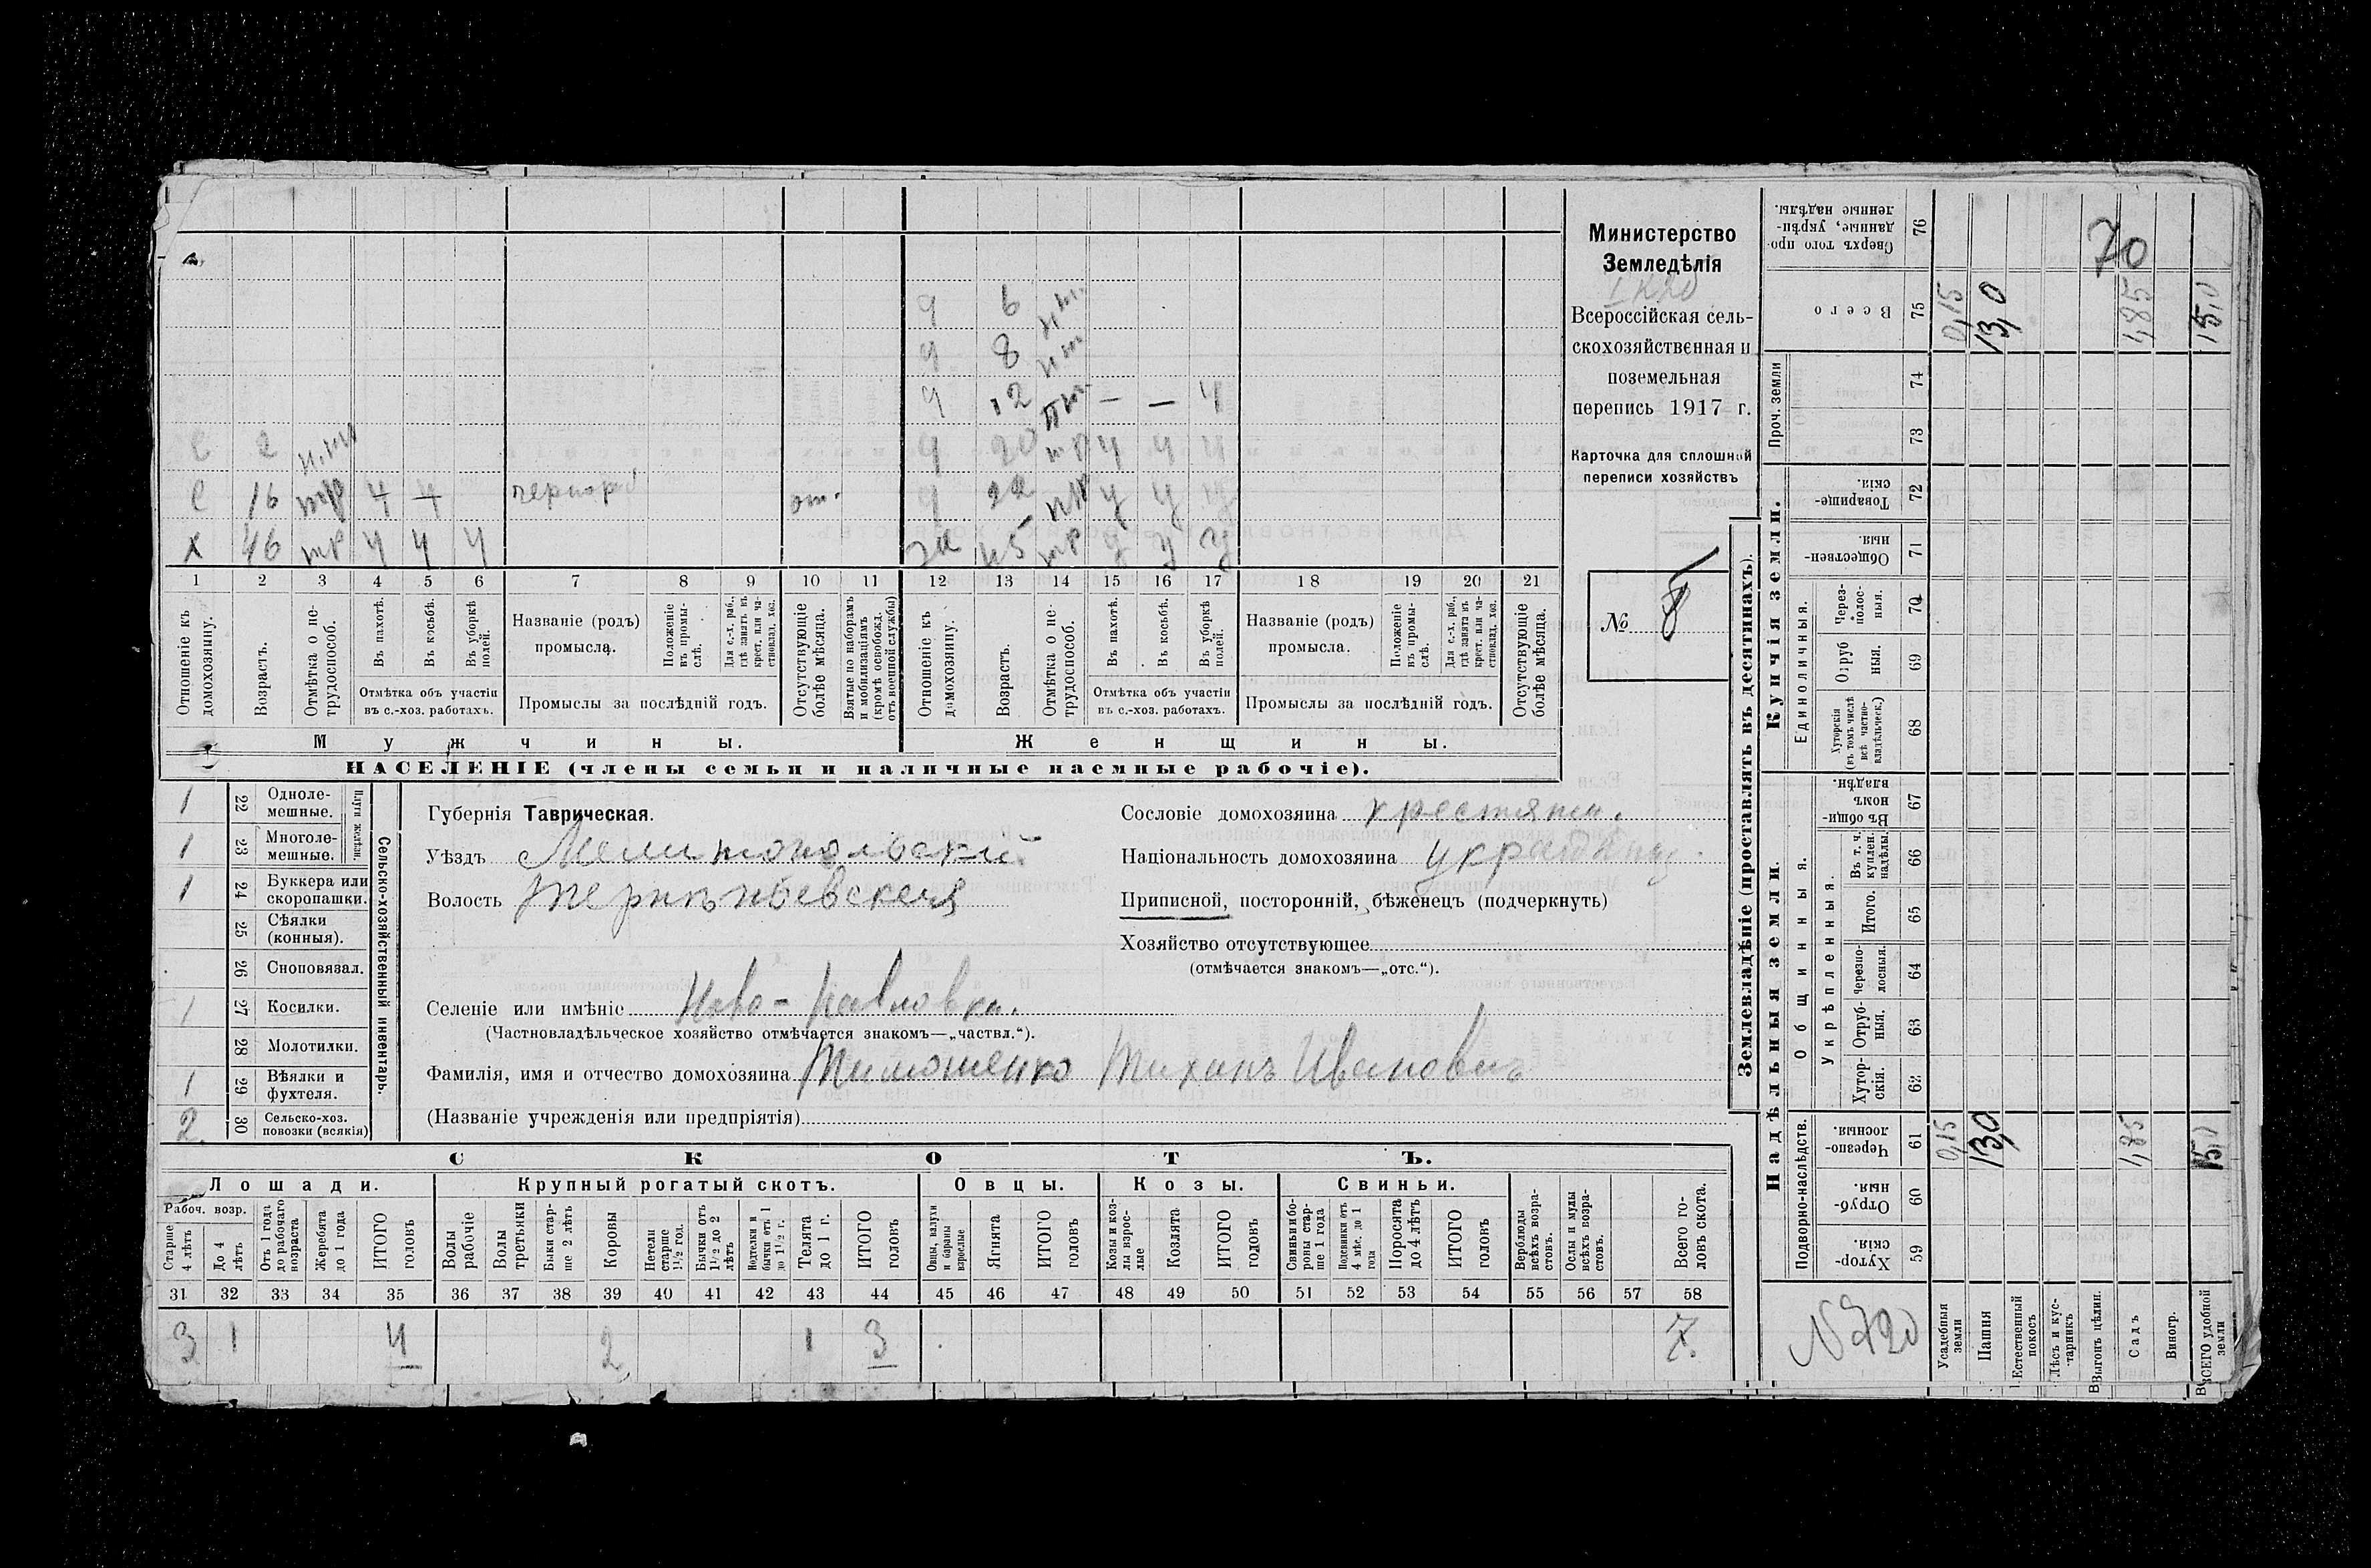 6
8
12
С 2 20
С 16 чернораб от.
Х 46 45
1 2 3 4 5 6 7 8 9 10 11 12 13 14 15 16 17 18 19 20 21
Отношеніе къ домохозяину.
Возрастъ.
Отмѣтка о нетрудоспособ.
Въ пахотѣ.
Въ косьбѣ.
Въ уборкѣ полей.
Отмѣтка объ участіи въ с.-хоз. работахъ.
Названіе (родъ) промысла.
Положеніе въ промыслѣ.
Для с.-х. раб., гдѣ занятъ въ крест. или частновлад. хоз.
Промыслы за послѣдній годъ.
Отсутствующіе болѣе мѣсяца.
Взятые по наборамъ и мобилизаціямъ (кромѣ освобожд. отъ военной службы)
Отношеніе къ домохозяину.
Возрастъ.
Отмѣтка о нетрудоспособ.
Въ пахотѣ.
Въ косьбѣ.
Въ уборкѣ полей.
Отмѣтка объ участіи въ с.-хоз. работахъ.
Названіе (родъ) промысла.
Положеніе въ промыслѣ.
Для с.-х. раб., гдѣ занята въ крест. или частновлад. хоз.
Промыслы за послѣдній годъ.
Отсутствующіе болѣе мѣсяца.
Мужчины. Женщины.
НАСЕЛЕНІЕ (члены семьи и наличные наемные рабочіе).
Министерство
Земледѣлія
Всероссійская сель-
скохозяйственная и
поземельная
перепись 1917 г.
Карточка для сплошной
переписи хозяйствъ
№ 8
1 22 Одноле-мешные.
1 23 Многоле-мешные.
Плуги желѣзн.
1 24 Буккера или скоропашки.
25 Сѣялки (конныя).
26 Сноповязал.
1 27 Косилки.
28 Молотилки.
1 29 Вѣялки и фухтеля.
2 30 Сельско-хоз. повозки (всякія)
Сельско-хозяйственный инвентарь.
Губернія Таврическая.
Уѣздъ Мелитопольскій
Волость
Селеніе или имѣніе Ново-Павловка.
(Частновладѣльческое хозяйство отмѣчается знакомъ—„частвл.“).
Фамилія, имя и отчество домохозяина Тимошенко Тихонъ Ивановичъ
(Названіе учрежденія или предпріятія)
Сословіе домохозяина крестянин.
Національность домохозяина
Приписной, посторонній, бѣженецъ (подчеркнуть)
Хозяйство отсутствующее
(отмѣчается знакомъ—„отс.“).
СКОТЪ.
Лошади. Крупный рогатый скотъ. Овцы. Козы. Свиньи.
Рабоч. возр.
Старше 4 лѣтъ
До 4 лѣтъ
Отъ 1 года до рабочаго возраста
Жеребята до 1 года
ИТОГО головъ
Волы рабочіе
Волы третьяки
Быки старше 2 лѣтъ
Коровы
Нетели старше 1½ год.
Бычки отъ 1½ до 2 лѣтъ
Нодтелки и бычки отъ 1 до 1½ г.
Телята до 1 г.
ИТОГО головъ
Овцы, валухи и бараны взрослые
Ягнята
ИТОГО головъ
Козы и козлы взрослые
Козлята
ИТОГО головъ
Свиньи и боровы старше 1 года
Подсвинки отъ 4 мѣс. до 1 года
Поросята до 4 лѣтъ
ИТОГО головъ
Верблюды всѣхъ возрастовъ.
Ослы и мулы всѣхъ возрастовъ.
Всего головъ скота.
31 32 33 34 35 36 37 38 39 40 41 42 43 44 45 46 47 48 49 50 51 52 53 54 55 56 57 58
3 1 4 2 1 3 7.
Землевладѣніе (проставлять въ десятинахъ).
Купчія земли.
Надѣльныя земли.
Сверхъ того проданные, укрѣпленные надѣлы. 76
70
Всего 75 0,15 13,0 1,85 15,0
Проч. земли 74 73
Товарищескія. 72
Общественныя. 71
Единоличныя.
Черезполосныя. 70
Отрубныя. 69
Хуторскія (въ томъ числѣ всѣ частновладѣльческ.) 68
Общинныя.
Въ общинномъ владѣн. 67
Укрѣпленныя.
Въ т. ч. куплен. надѣлы. 66
Итого. 65
Черезполосныя. 64
Отрубныя. 63
Хуторскія. 62
Подворно-наслѣдств.
Черезполосныя. 61 0,15 13,0 1,85 15,0
Отрубныя. 60
Хуторскія. 59
Усадебныя земли
Пашня
Естественный покосъ
Лѣсъ и кустарникъ
Выгонъ цѣлин.
Садъ
Виногр.
ВСЕГО удобной земли